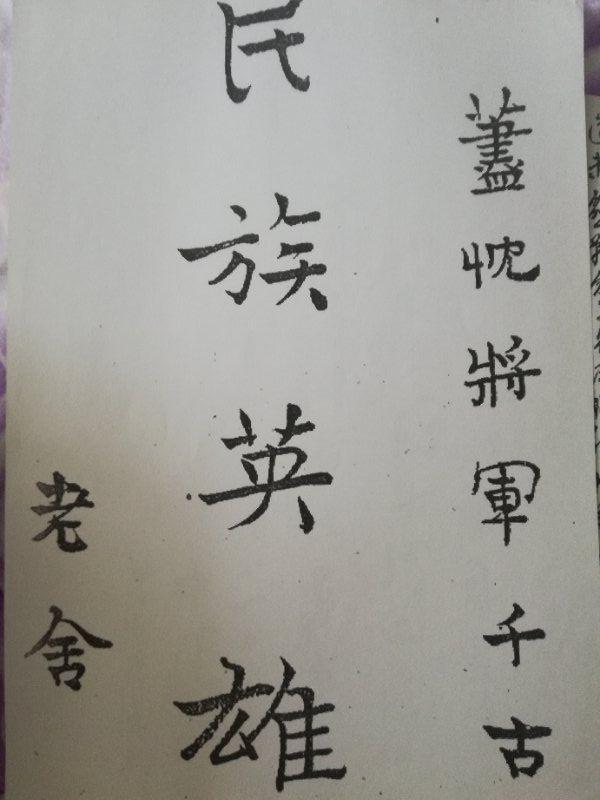 藎忱將軍千古
民族英雄
老舍